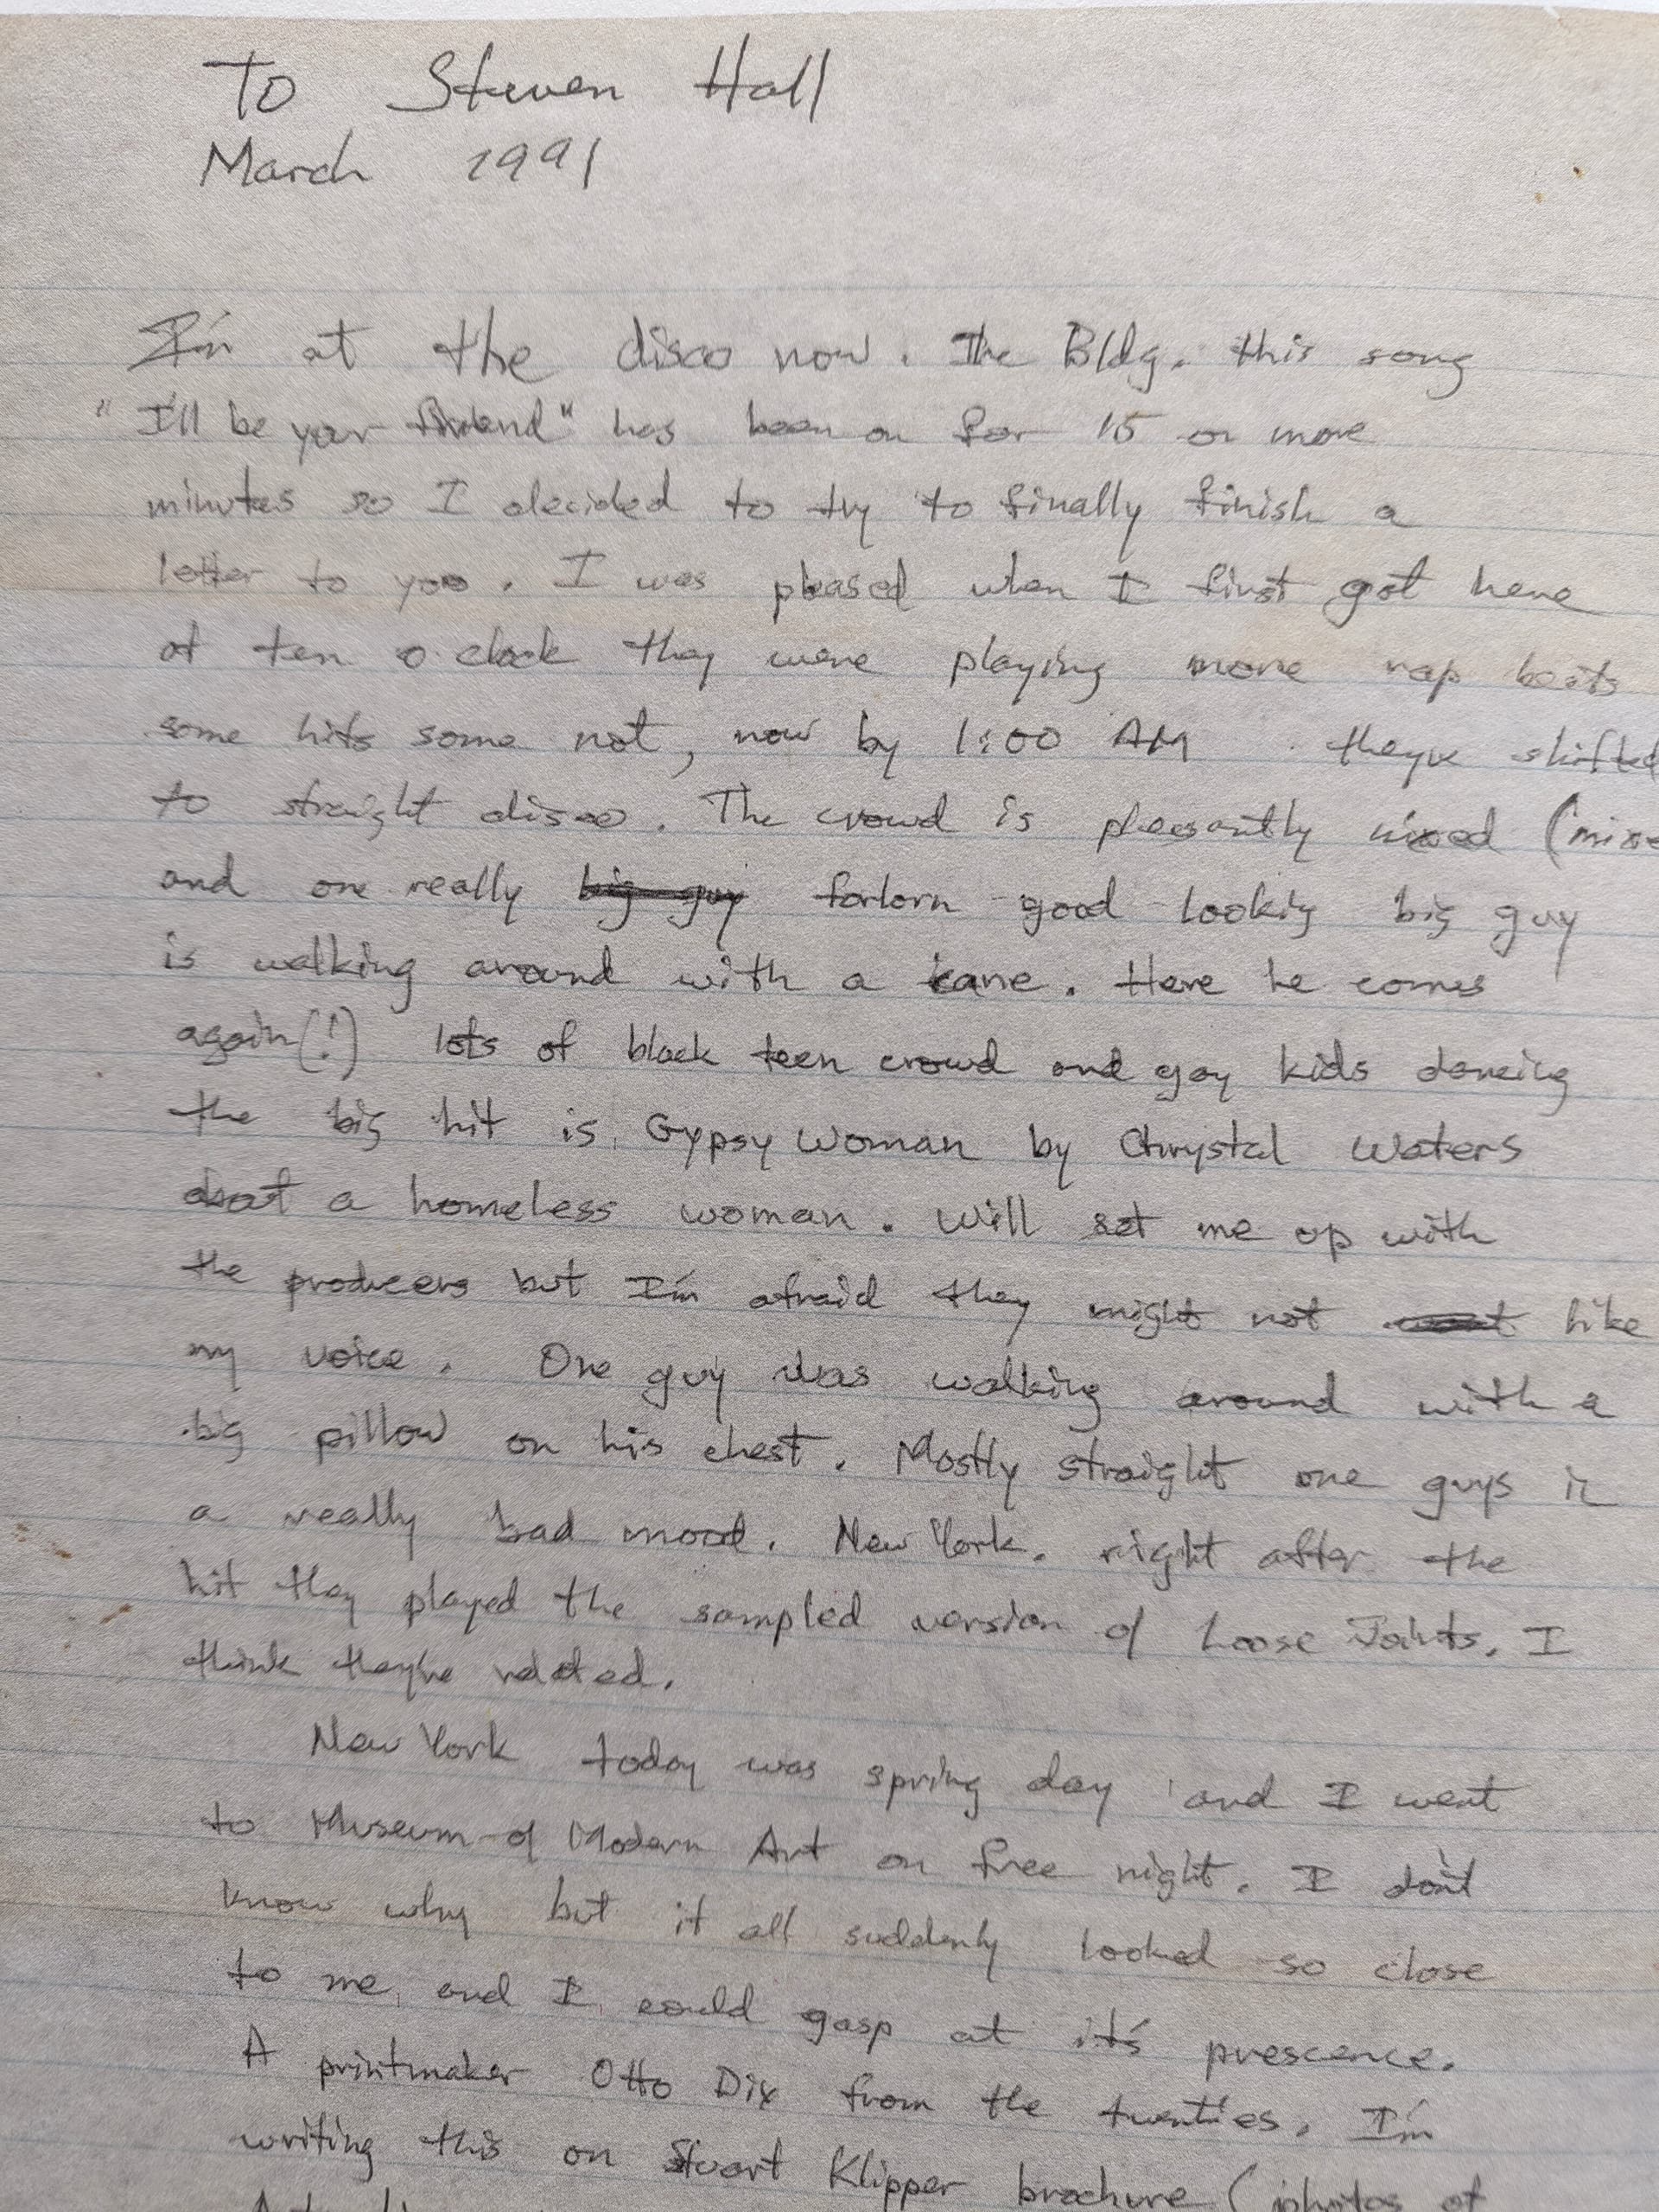 To Steven Hall
March 1991
I'm at the disco now. The Bldg. this song
"I'll be your friend" has been on for 15 or more
minutes so I decided to try to finally finish a
letter to you. I was pleased when I first got here
at ten o.clock they were playing more rap beats
some hits some not, now by 1:00 AM . they've shifted
to straight disco. The crowd is pleasantly mixed (mixed
and one really big guy forlorn good looking big guy
is walking around with a cane. Here he comes
again(!) lots of black teen crowd and gay kids dancing
the big hit is Gypsy Woman by Chrystal Waters
about a homeless woman. Will set me up with
the producers but I'm afraid they might not like
my voice. One guy was walking around with a
big pillow on his chest. Mostly straight one guys in
a really bad mood. New York. right after the
hit they played the sampled version of Loose Joints. I
think they're related.
New York today was spring day and I went
to Museum of Modern Art on free night. I don't
know why but it all suddenly looked so close
to me, and I could gasp at it's prescence.
A printmaker Otto Dix from the twenties. I'm
writing this on Stuart Klipper brochure (photos of